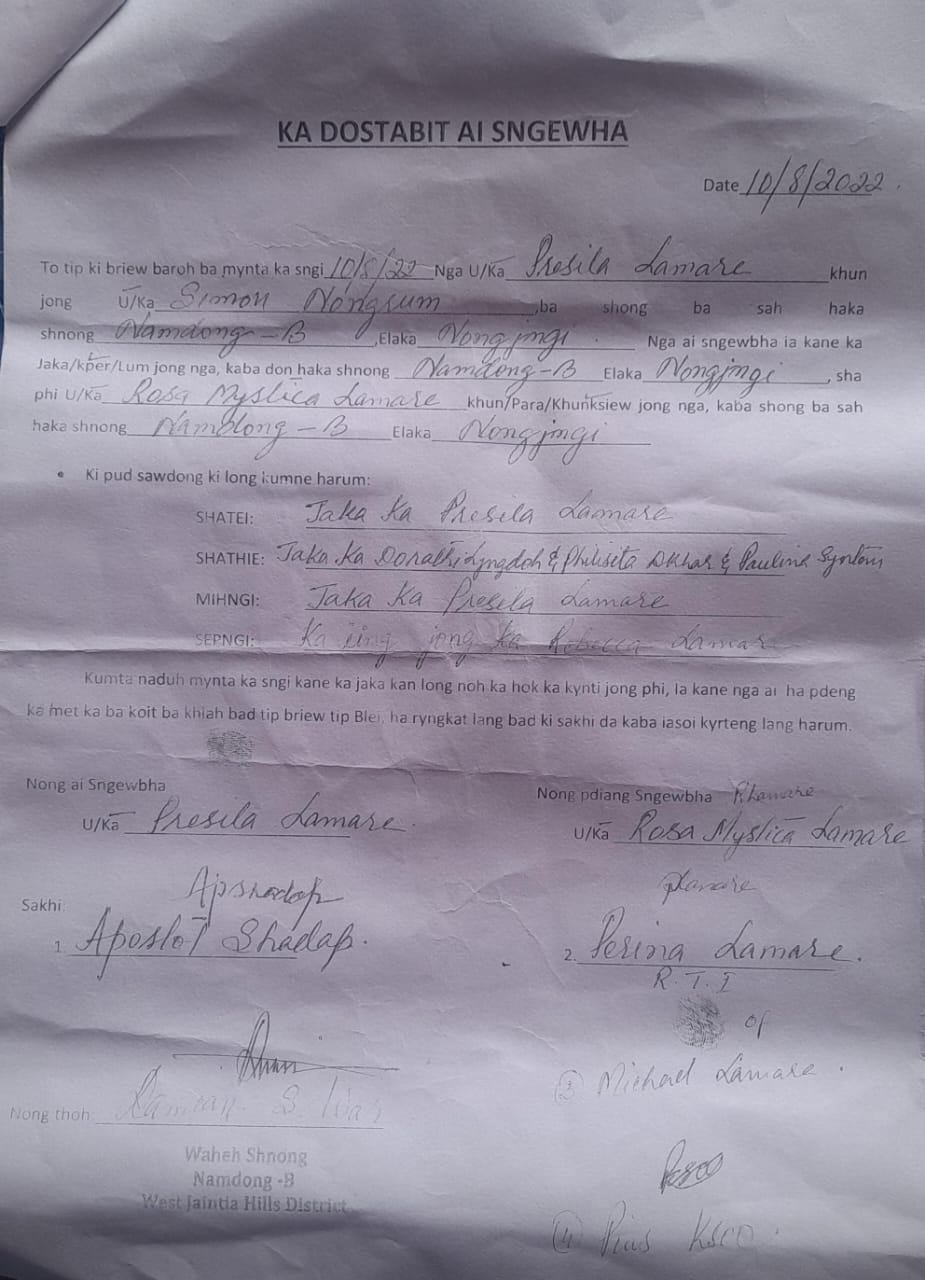 KA DOSTABIT AI SNGEWHA
Date 10/8/2022.
To tip ki briew baroh ba mynta ka sngi 10/8/22 Nga U/Ka Presila Lamare khun
jong U/Ka Simon Nongrum ,ba shong ba sah haka
shnong Namdong-B ,Elaka Nongjngi. Nga ai sngewbha ia kane ka
Jaka/kper/Lum jong nga, kaba don haka shnong Namdong-B Elaka Nongjngi, sha
phi U/Ka Rosa Mystica Lamare khun/Para/Khunksiew jong nga, kaba shong ba sah
haka shnong Namdong-B Elaka Nongjngi
• Ki pud sawdong ki long kumne harum:
SHATEI: Jaka Ka Presila Lamare
SHATHIE: Jaka Ka Donathi Lyngdoh & Philisita Dkhar & Paulina Syntem
MIHNGI: Jaka Ka Presila Lamare
SEPNGI: Ka iing jong ka Rebecca Lamar
Kumta naduh mynta ka sngi kane ka jaka kan long noh ka hok ka kynti jong phi, Ia kane nga ai ha pdeng
ka met ka ba koit ba khiah bad tip briew tip Blei, ha ryngkat lang bad ki sakhi da kaba iasoi kyrteng lang harum.
Nong ai Sngewbha
Nong pdiang Sngewbha Rlamare
U/Ka Presila Lamare.
U/Ka Rosa Mystica Lamare
Sakhi:
Apshadap
plamare
1. Apostol Shadap.
2. Perina Lamare.
R.T.I
of
③ Michael Lamare.
Nong thoh: S. War
Waheh Shnong
Namdong -B
West Jaintia Hills District
④ Pius Ksoo.